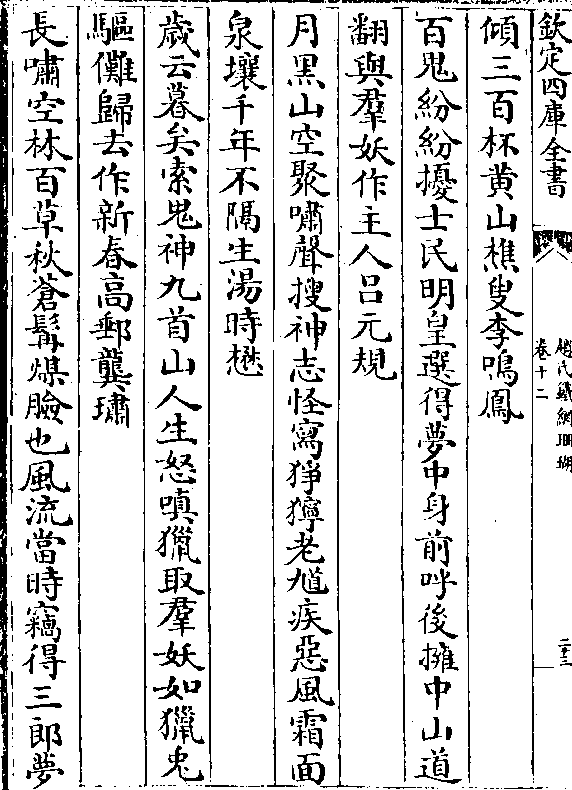 欽定四庫全書
趙氏鐵網珊瑚
卷十二
二十三
傾三百杯黄山樵叟李鳴鳳
百鬼紛紛擾士民明皇選得夢中身前呼後擁中山道
翻與羣妖作主人吕元規
月黒山空聚嘯聲搜神志怪寫猙獰老馗疾惡風霜面
泉壤千年不隔生湯時懋
歳云暮矣索鬼神九首山人生怒嗔獵取羣妖如獵兎
驅儺歸去作新春高郵龔璛
長嘯空林百草秋蒼髯煤臉也風流當時竊得三郎夢